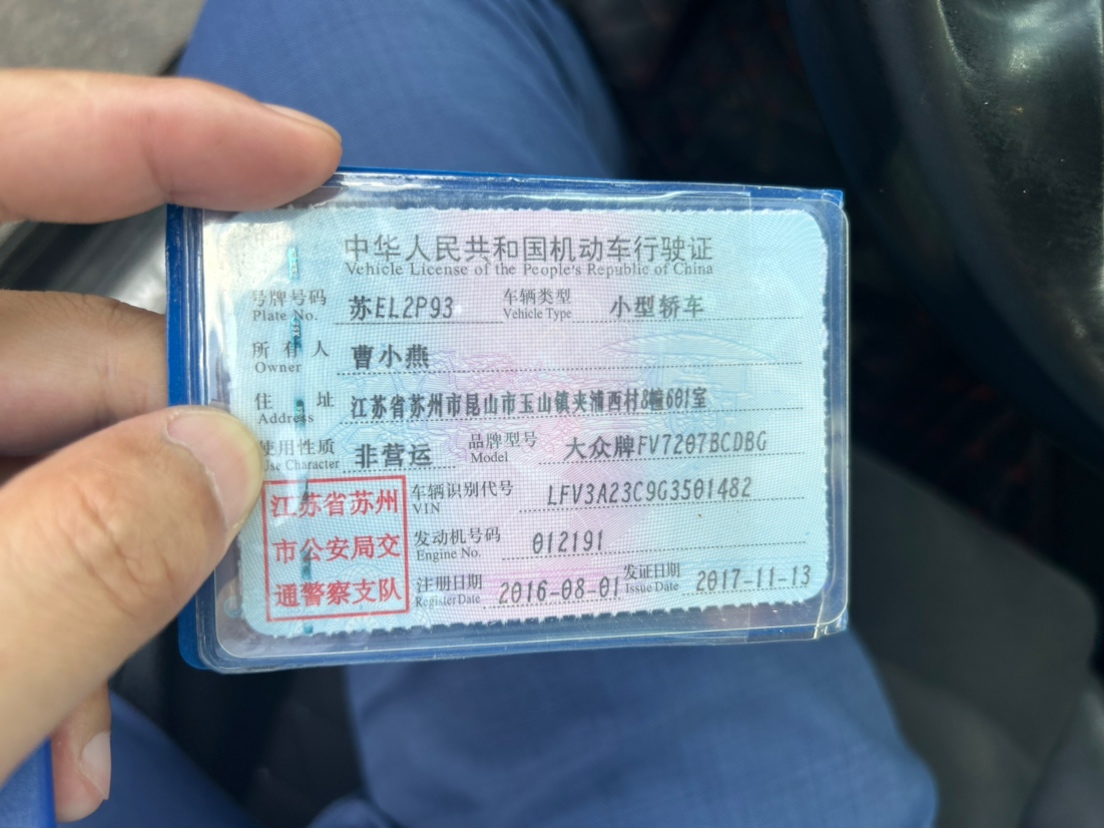 中华人民共和国机动车行驶证
Vehicle License of the People's Republic of China
号牌号码 苏EL2P93 车辆类型 小型轿车
Plate No. Vehicle Type
所有人 曹小燕
Owner
住址 江苏省苏州市昆山市玉山镇夹浦西村8幢601室
Address
使用性质 非营运 品牌型号 大众牌FV7207BCDBG
Use Character Model
江苏省苏州
市公安局交
通警察支队
车辆识别代号 LFV3A23C9G3501482
VIN
发动机号码 012191
Engine No.
注册日期 2016-08-01 发证日期 2017-11-13
Register Date Issue Date